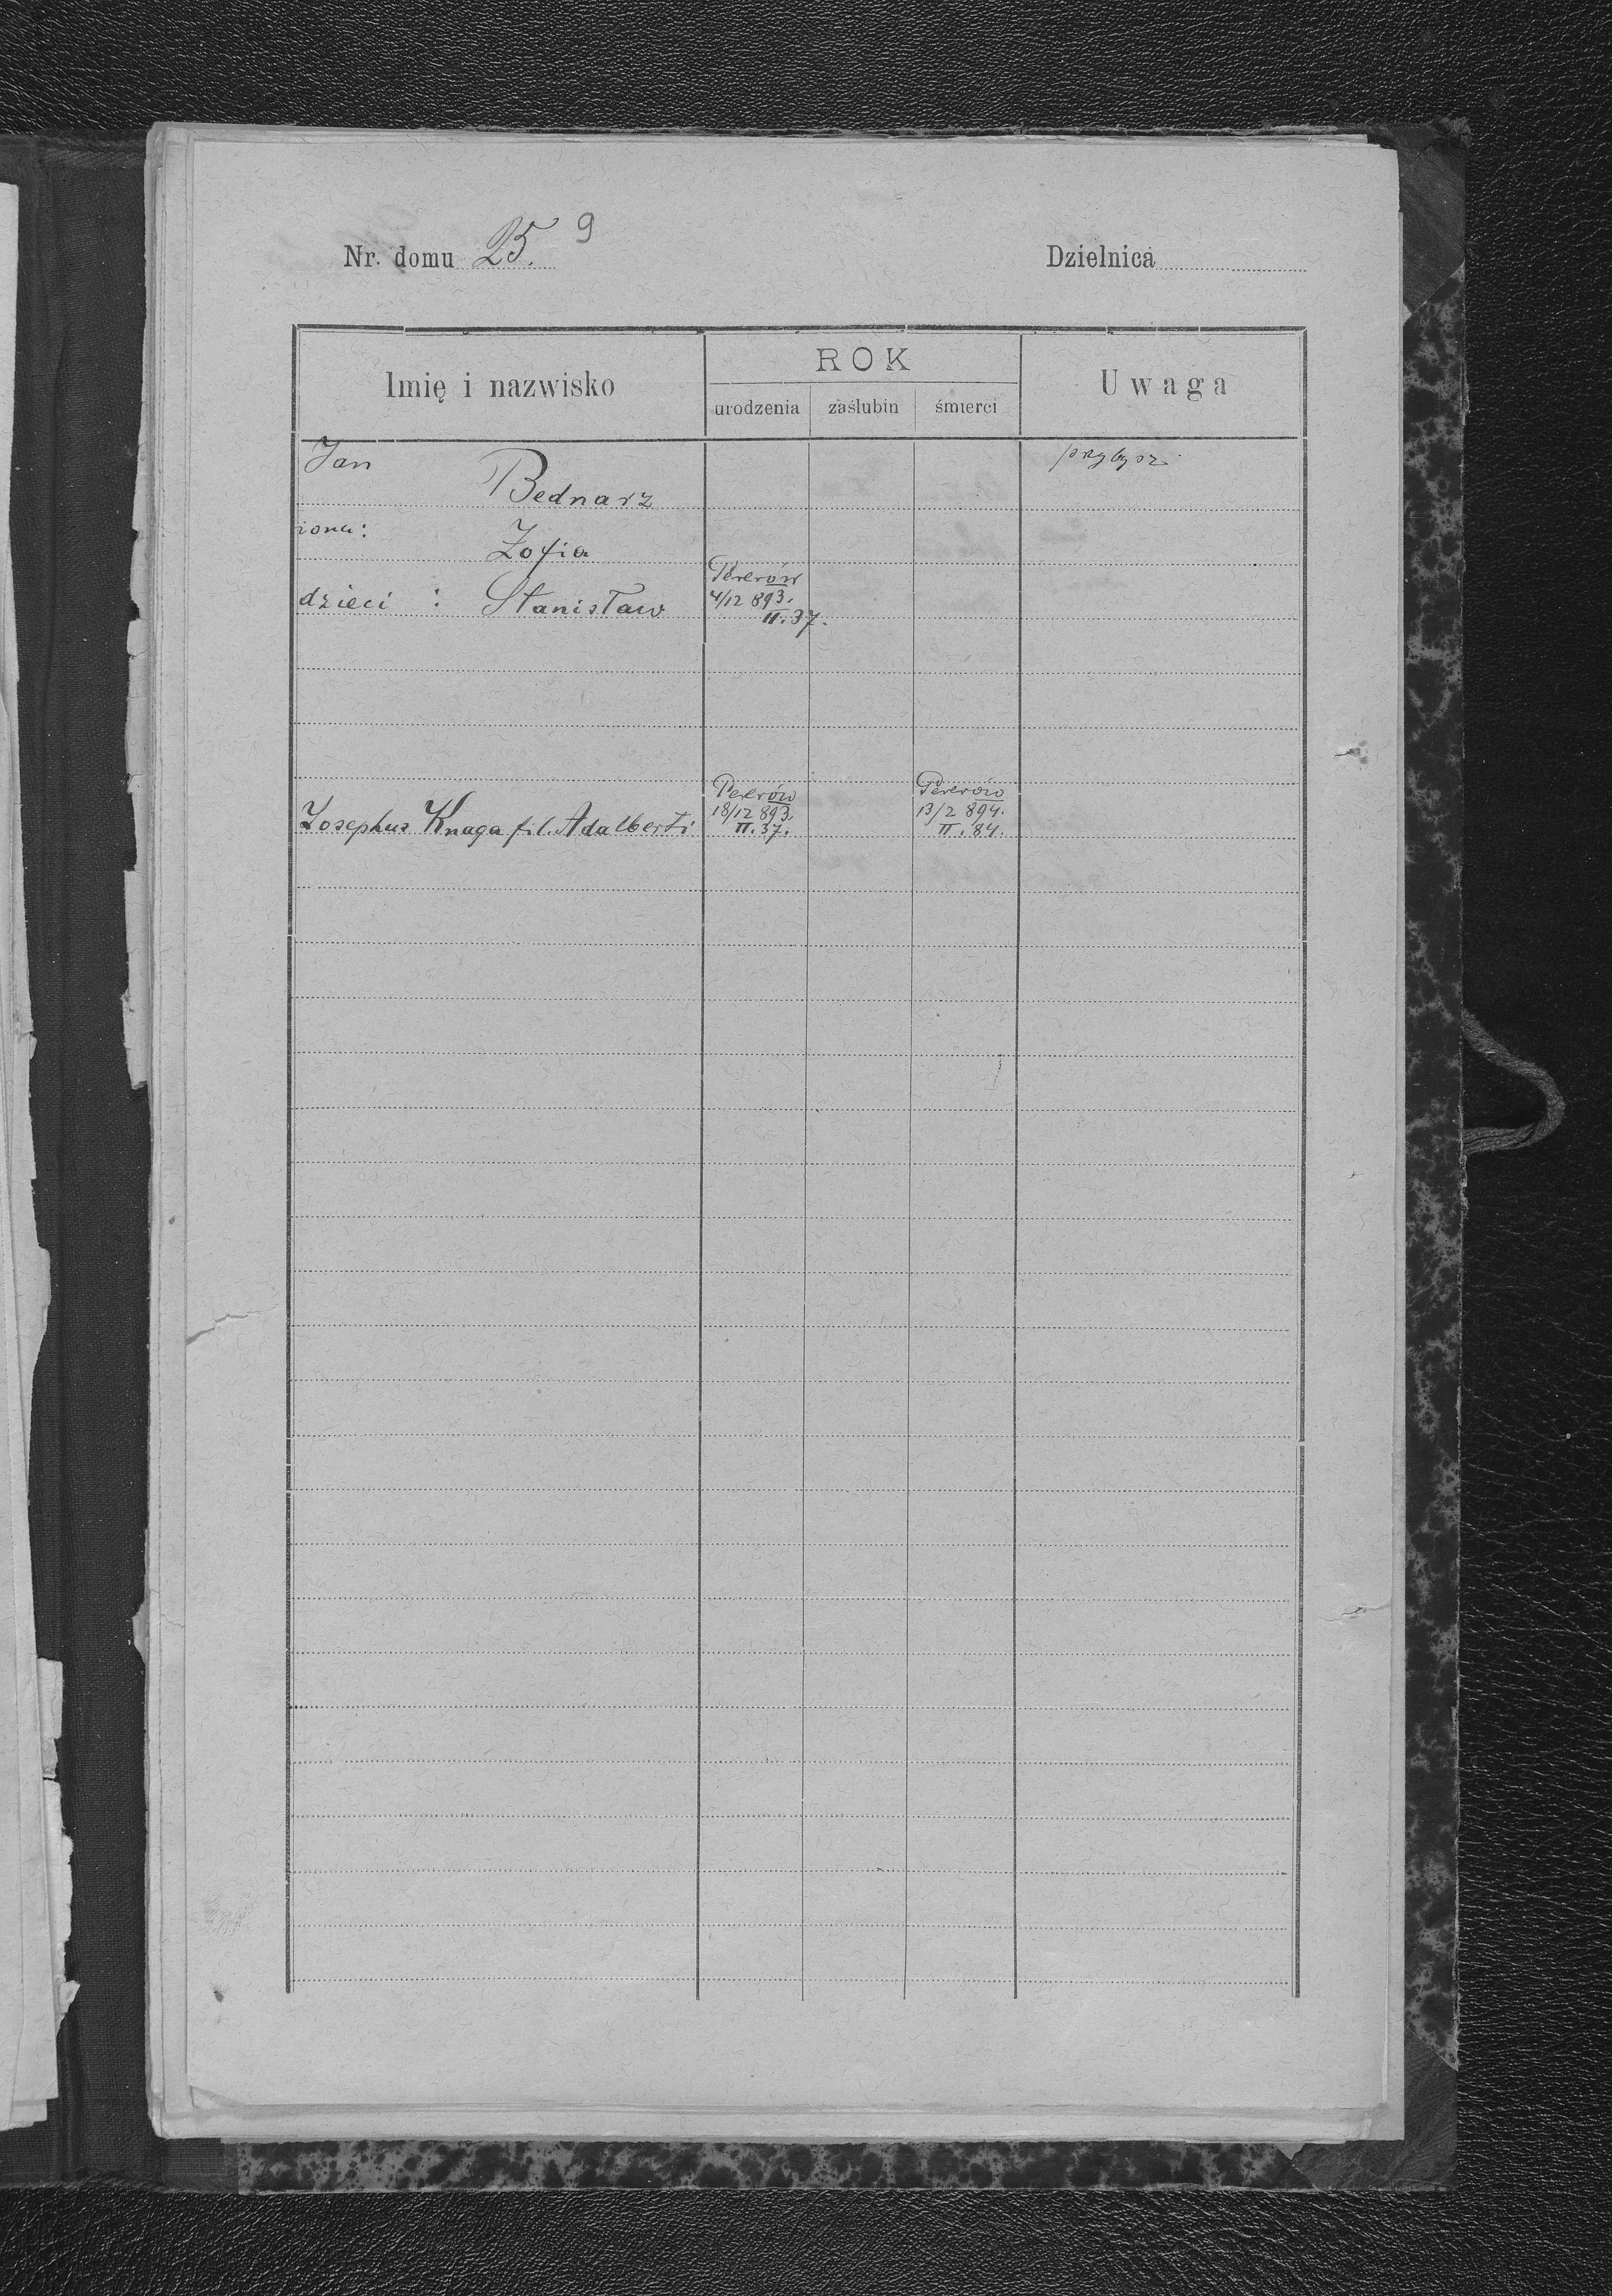 Nr. domu 25. 9 Dzielnica
Imię i nazwisko
ROK
Uwaga
urodzenia zaślubin śmierci
Jan przybysz
Bednarz
żona:
Zofia
dzieci : Stanisław
4/12 893.
II.37.
Josephus Knaga fil. Adalberti
18/12 893. 13/2 894.
II.37. II.84.